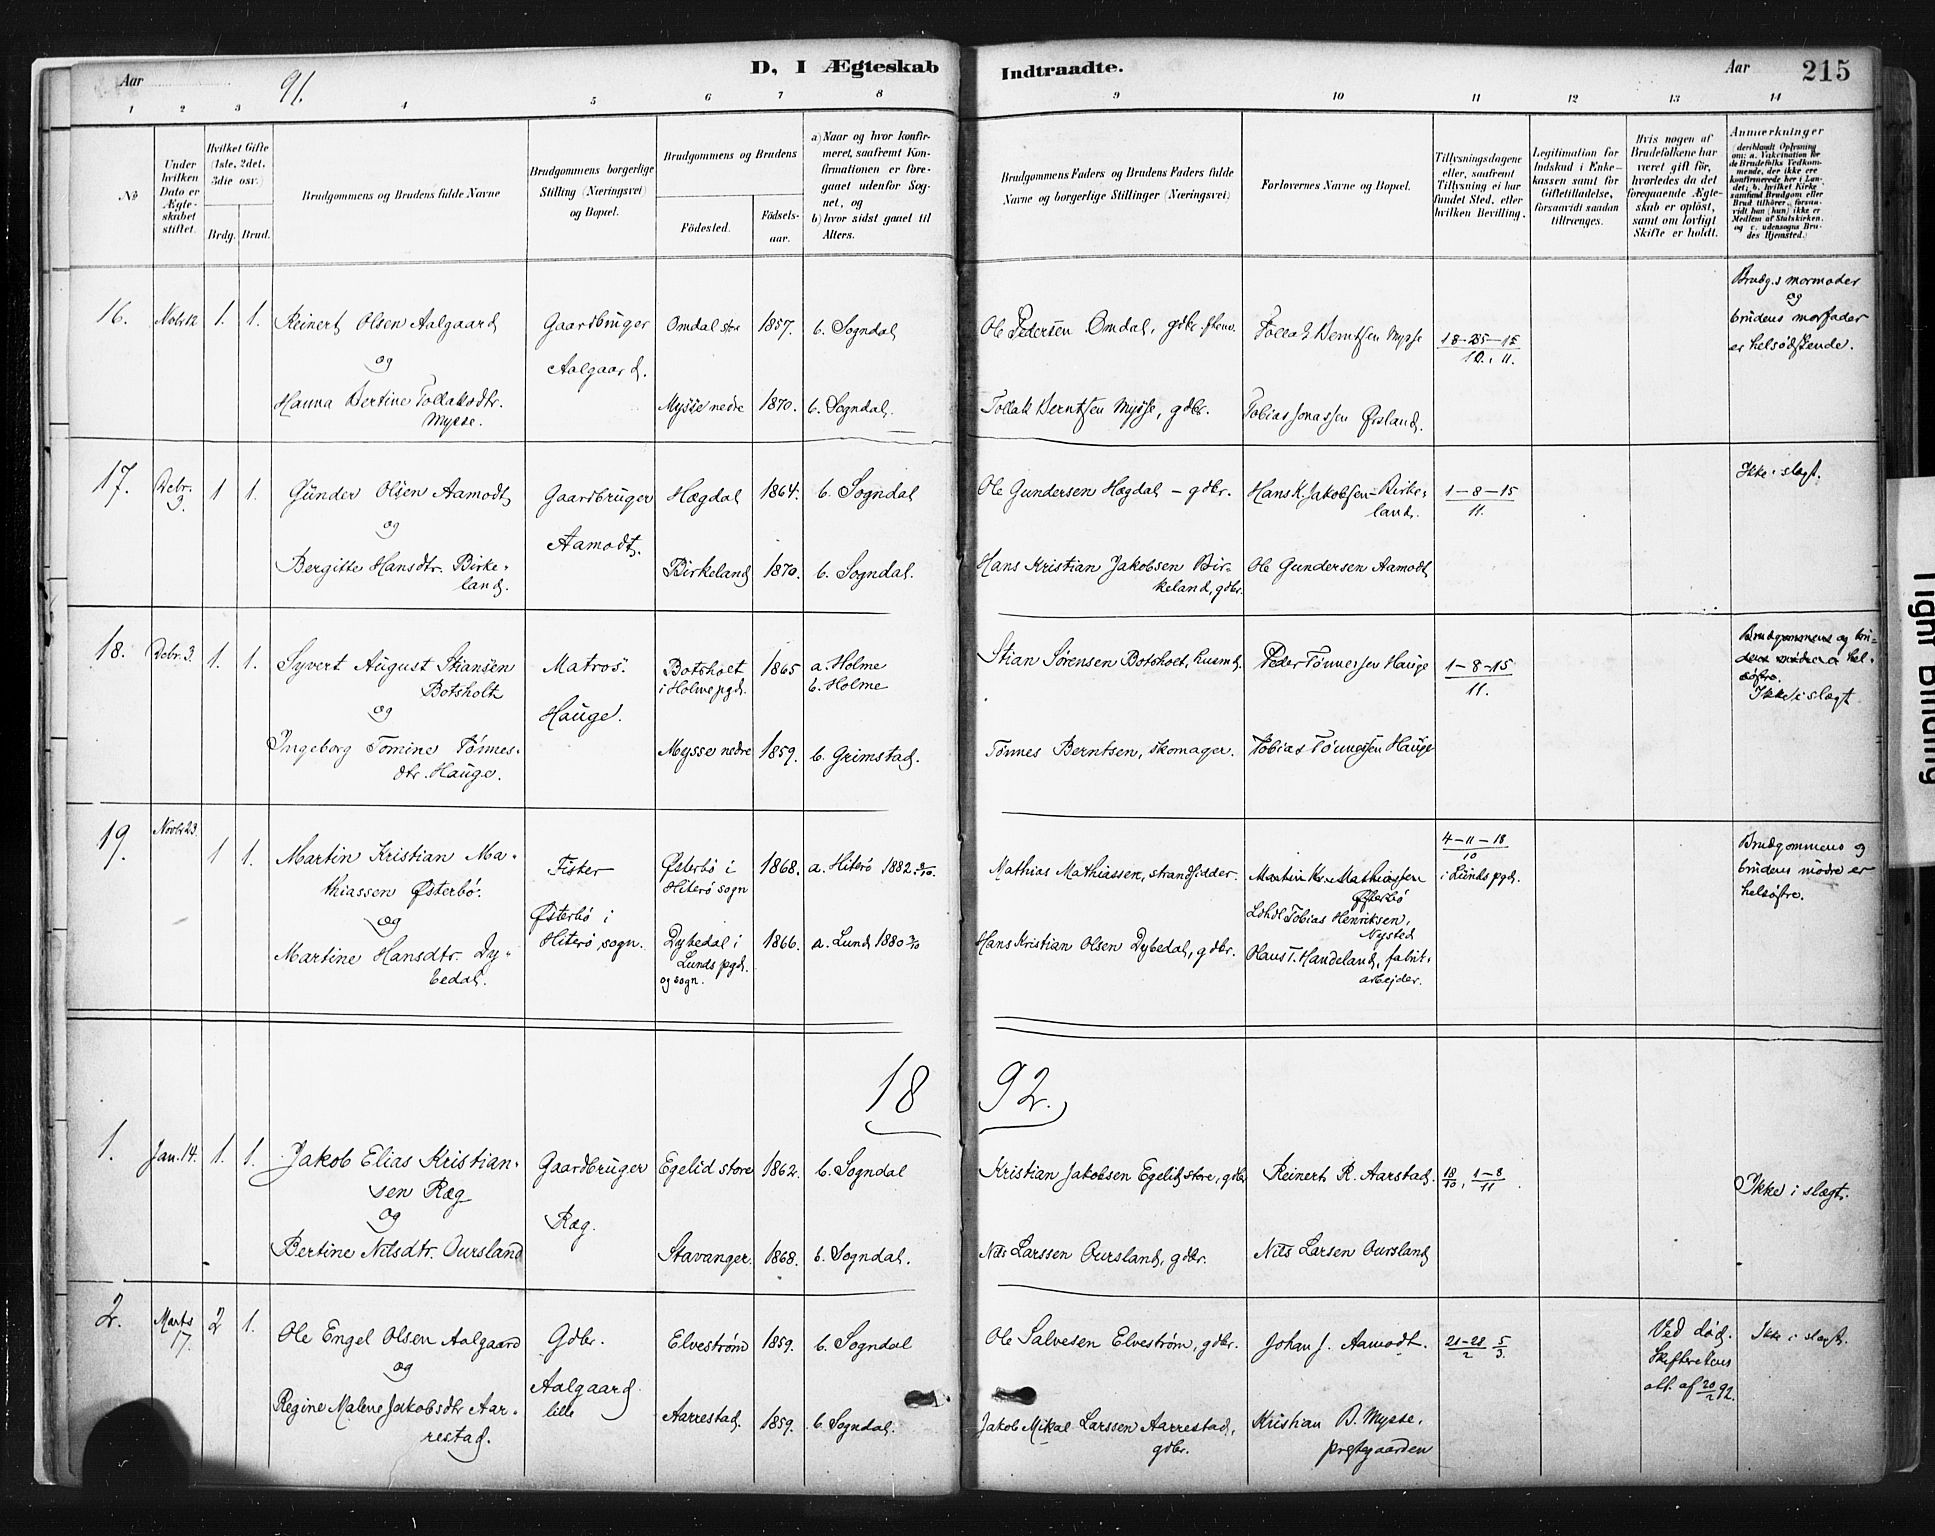 Aar 91. D, I Ægteskab Indtraadte. Aar 215
1 2 3 4 5 6 7 8 9 10 11 12 13 14
No
Under hvilken Dato er Ægteskabet stiftet.
Hvilket Gifte (1ste, 2det, 3die osv.)
Brdg. Brud.
Brudgommens og Brudens fulde Navne
Brudgommens borgerlige Stilling (Næringsvei) og Bopæl.
Brudgommens og Brudens
Fødested. Fødselsaar.
a) Naar og hvor konfirmeret, saafremt Konfirmationen er foregaaet udenfor Sognet, og
b) hvor sidst gaaet til Alters.
Brudgommens Faders og Brudens Faders fulde Navne og borgerlige Stillinger (Næringsvei)
Forlovernes Navne og Bopæl.
Tillysningsdagene eller, saafremt Tillysning ei har fundet Sted, efter hvilken Bevilling.
Legitimation for Indskud i Enkekassen samt for Giftetilladelse, forsaavidt saadan tiltrænges.
Hvis nogen af Brudefolkene har været gift før, hvorledes da det foregaaende Ægteskab er opløst, samt om lovligt Skifte er holdt.
Anmærkninger
16. Novbr 12 1. 1. Reinert Olsen Aalgaard
og
Hanna Bertine Tollaksdtr.
Mysse.
Gaardbruger
Aalgaard.
Omdal store 1857. b. Sogndal
Mysse nedre 1870. b. Sogndal.
Ole Pedersen Omdal, gdbr.
Tollak Berntsen Mysse, gdbr.
Tollak Berntsen Mysse
Tobias Jonassen Øisland.
18-25-15
10. 11.
Brudg.s mormoder
og
brudens morfader
er helsødskende.
17. Debr. 3. 1 1. Gunder Olsen Aamodt
og
Bergitte Hansdtr. Birke-
land.
Gaardbruger
Aamodt.
Hægdal 1864. b. Sogndal
Birkeland 1870. b. Sogndal.
Ole Gundersen Hægdal - gdbr.
Hans Kristian Jakobsen Bir-
keland, gdbr.
Hans K. Jakobsen Birke-
land.
Ole Gundersen Aamodt
1-8-15
11.
Ikke i slægt.
18. Debr. 3. 1. 1. Syvert August Stiansen
Botsholt
og
Ingeborg Tomine Tønnes-
dtr. Hauge.
Matros.
Hauge.
Botsholt
i Holme pgd.
1865 a. Holme
b. Holme
Mysse nedre 1859. b. Grimstad.
Stian Sørensen Botsholt, husmd.
Tønnes Berntsen, skomager.
Peder Tønnessen Hauge
Tobias Tønnessen Hauge
1-8-15
11.
Brudgommens og bru-
dens mødre er hel-
søstre.
Ikke i slægt
19. Novbr 23. 1 1. Martin Kristian Ma-
thiassen Østerbø.
og
Martine Hansdtr. Dy-
bedal.
Fisker
Østerbø i
Hiterø sogn.
Østerbø i
Hiterø sogn
1868. a. Hiterø 1882
Dybedal i
Lunds pgd.
og sogn.
1866. a. Lund 1880
Mathias Mathiassen, strandsidder.
Hans Kristian Olsen Dybedal, gdbr.
Martin Kr. Mathiassen
Østerbø
Ldhdl. Tobias Henriksen,
Nysted
Hans T. Handeland, fabrik-
arbejder.
4-11-18
10
i Lunds pgd.
Brudgommens og
brudens mødre er
helsøstre.
18 92.
1. Jan. 14. 1. 1. Jakob Elias Kristian-
sen Ræg
og
Bertine Nilsdtr. Oursland
Gaardbruger
Ræg.
Egelid store 1862. b. Sogndal
Stavanger. 1868. b. Sogndal.
Kristian Jakobsen Egelid store, gdbr
Nils Larssen Oursland, gdbr.
Reinert R. Aarstad.
Nils Larsen Oursland
18/10, 1-8/11
Ikke i slægt.
2. Marts 17. 2 1. Ole Engel Olsen Aalgaard
og
Regine Malene Jakobsdtr Aar-
restad.
Gdbr.
Aalgaard
lille
Elvestrøm 1859. b. Sogndal
Aarrestad. 1859. b. Sogndal.
Ole Salvesen Elvestrøm, gdbr.
Jakob Mikal Larssen Aarrestad,
gdbr.
Johan J. Aamodt.
Kristian B. Mysse,
prestegaarden
21-28/2 5/3.
Ved død.
Skifterettens
att. af 20/2 92.
Ikke i slægt.
Tight Binding